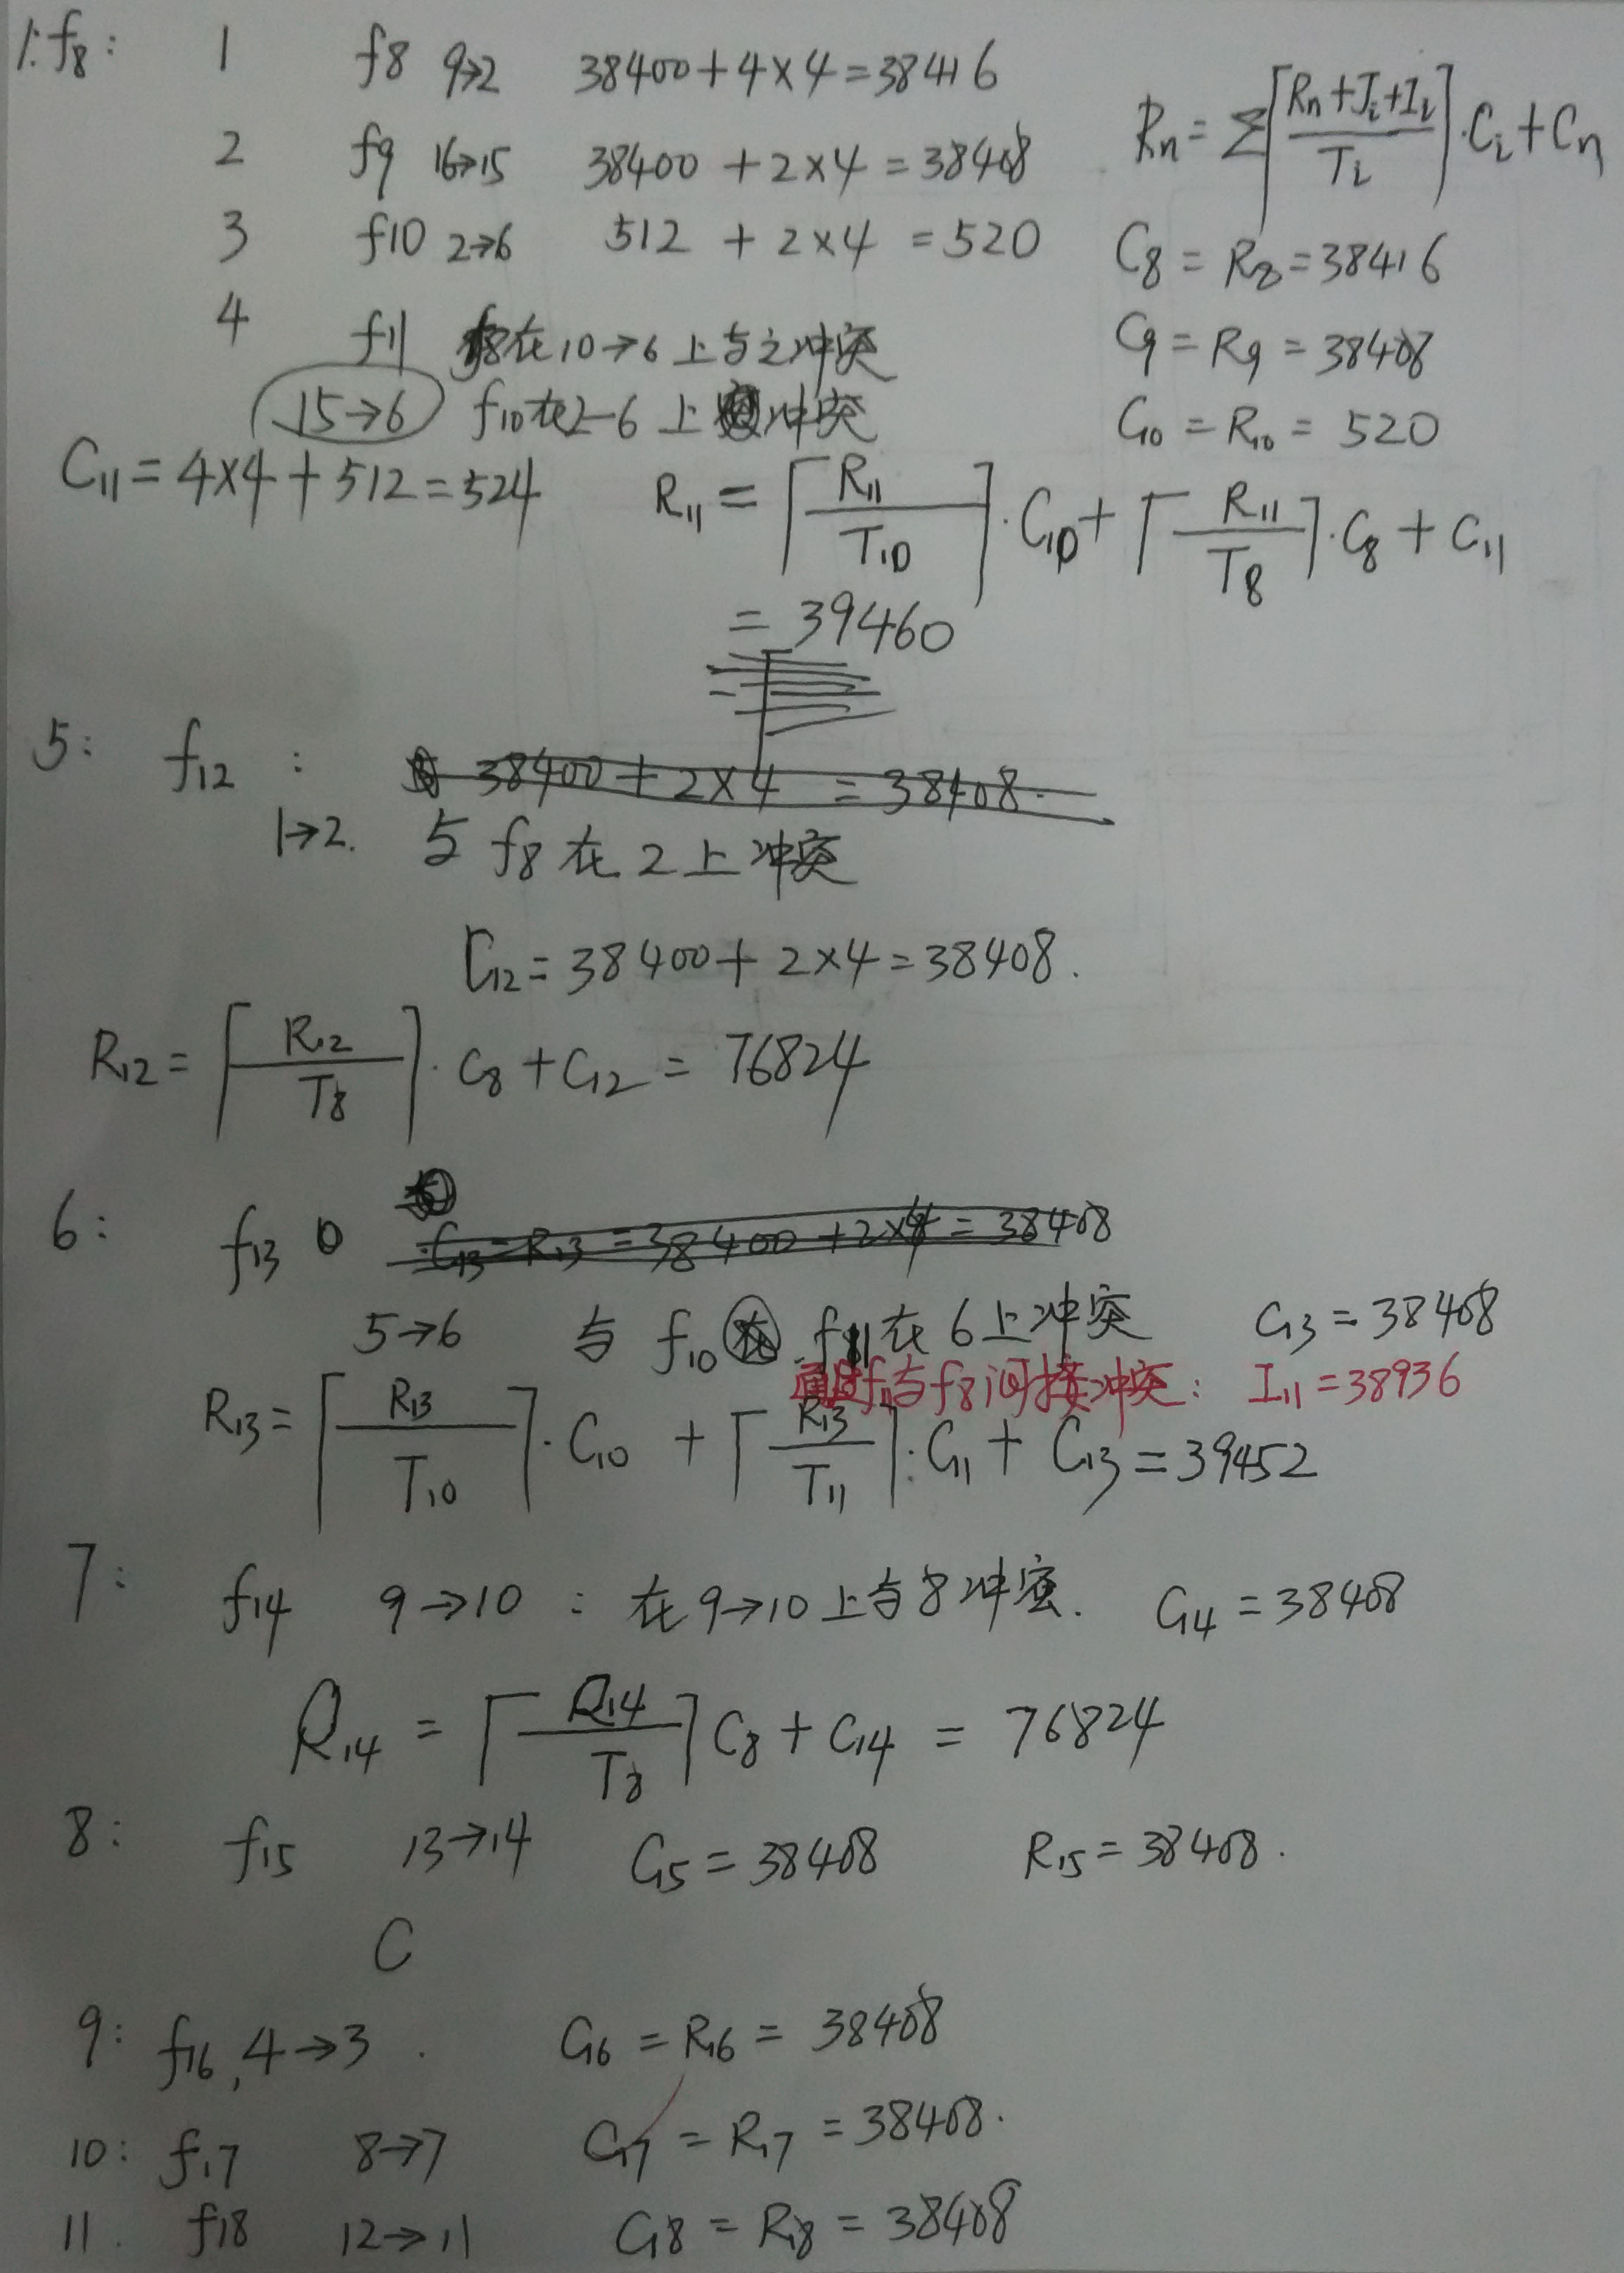 1: f8: 1 f8 9→2 38400+4×4=38416
Rn = Σ⌈(Rn+Ji+Ii)/Ti⌉·Ci+Cn
2 f9 16→15 38400+2×4=38408
3 f10 2→6 512+2×4=520
C8=R8=38416
4 f11 f8在10→6上与之冲突
C9=R9=38408
15→6 f10在2-6上冲突
C10=R10=520
C11=4×4+512=524
R11=⌈R11/T10⌉·C10+⌈R11/T8⌉·C8+C11
=39460
5: f12: 38400+2×4=38408.
1→2. 与f8在2上冲突
C12=38400+2×4=38408.
R12=⌈R12/T8⌉·C8+C12=76824
6: f13 C13=R13=38400+2×4=38408
5→6 与f10 f11在6上冲突 C13=38408
通过f11与f8间接冲突: I11=38936
R13=⌈R13/T10⌉·C10+⌈R13/T11⌉·C11+C13=39452
7: f14 9→10: 在9→10上与8冲突. C14=38408
R14=⌈R14/T8⌉C8+C14=76824
8: f15 13→14 C15=38408 R15=38408.
C
9: f16, 4→3. C16=R16=38408
10: f17 8→7 C17=R17=38408.
11. f18 12→11 C18=R18=38408